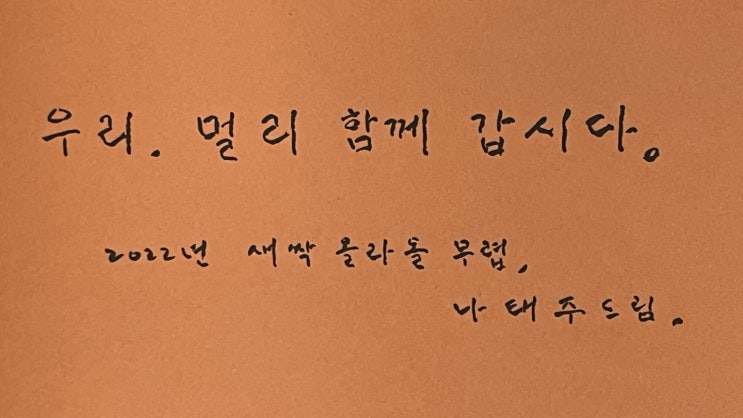 우리. 멀리 함께 갑시다.
2022년 새싹 올라올 무렵,
나태주드림.